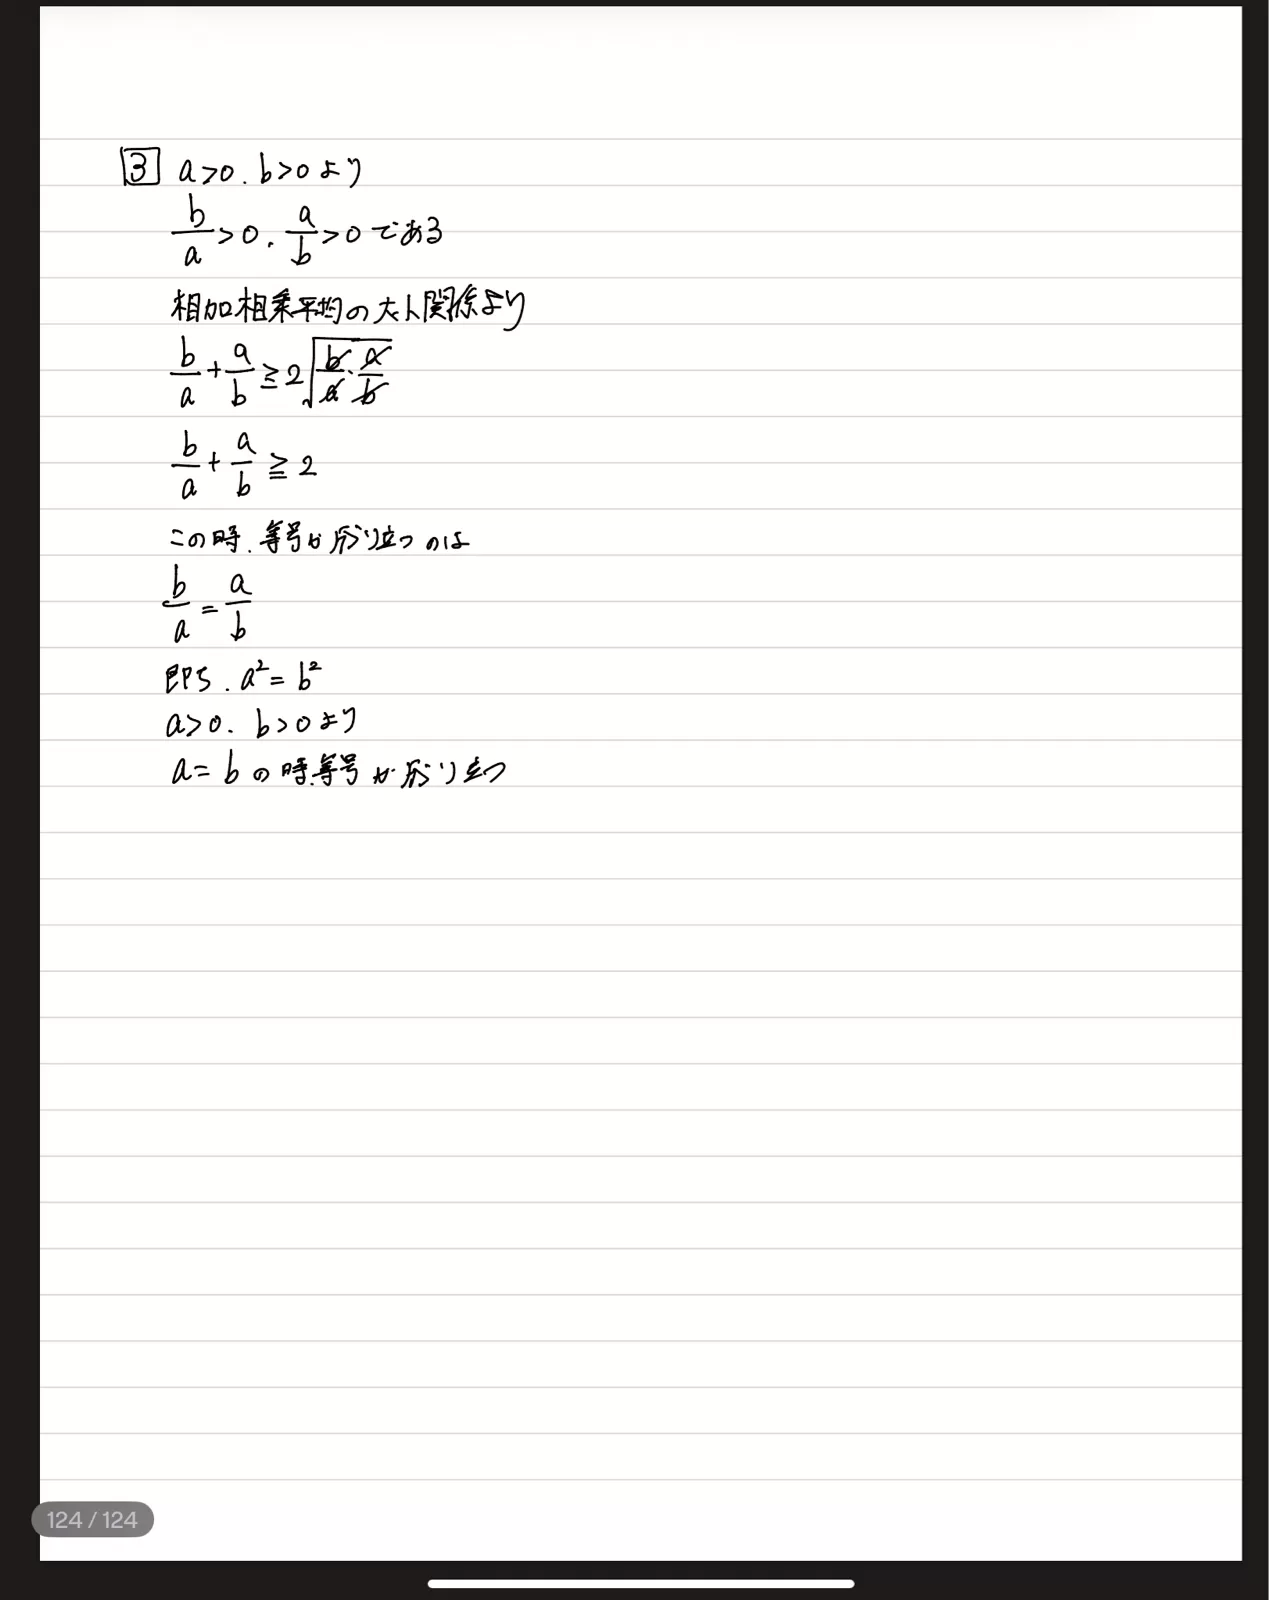 3 a>0. b>0より
b/a>0. a/b>0である
相加相乗平均の大小関係より
b/a+a/b≧2√(b/a・a/b)
b/a+a/b≧2
この時.等号が成り立つのは
b/a=a/b
即ち.a²=b²
a>0. b>0より
a=bの時.等号が成り立つ
124 / 124